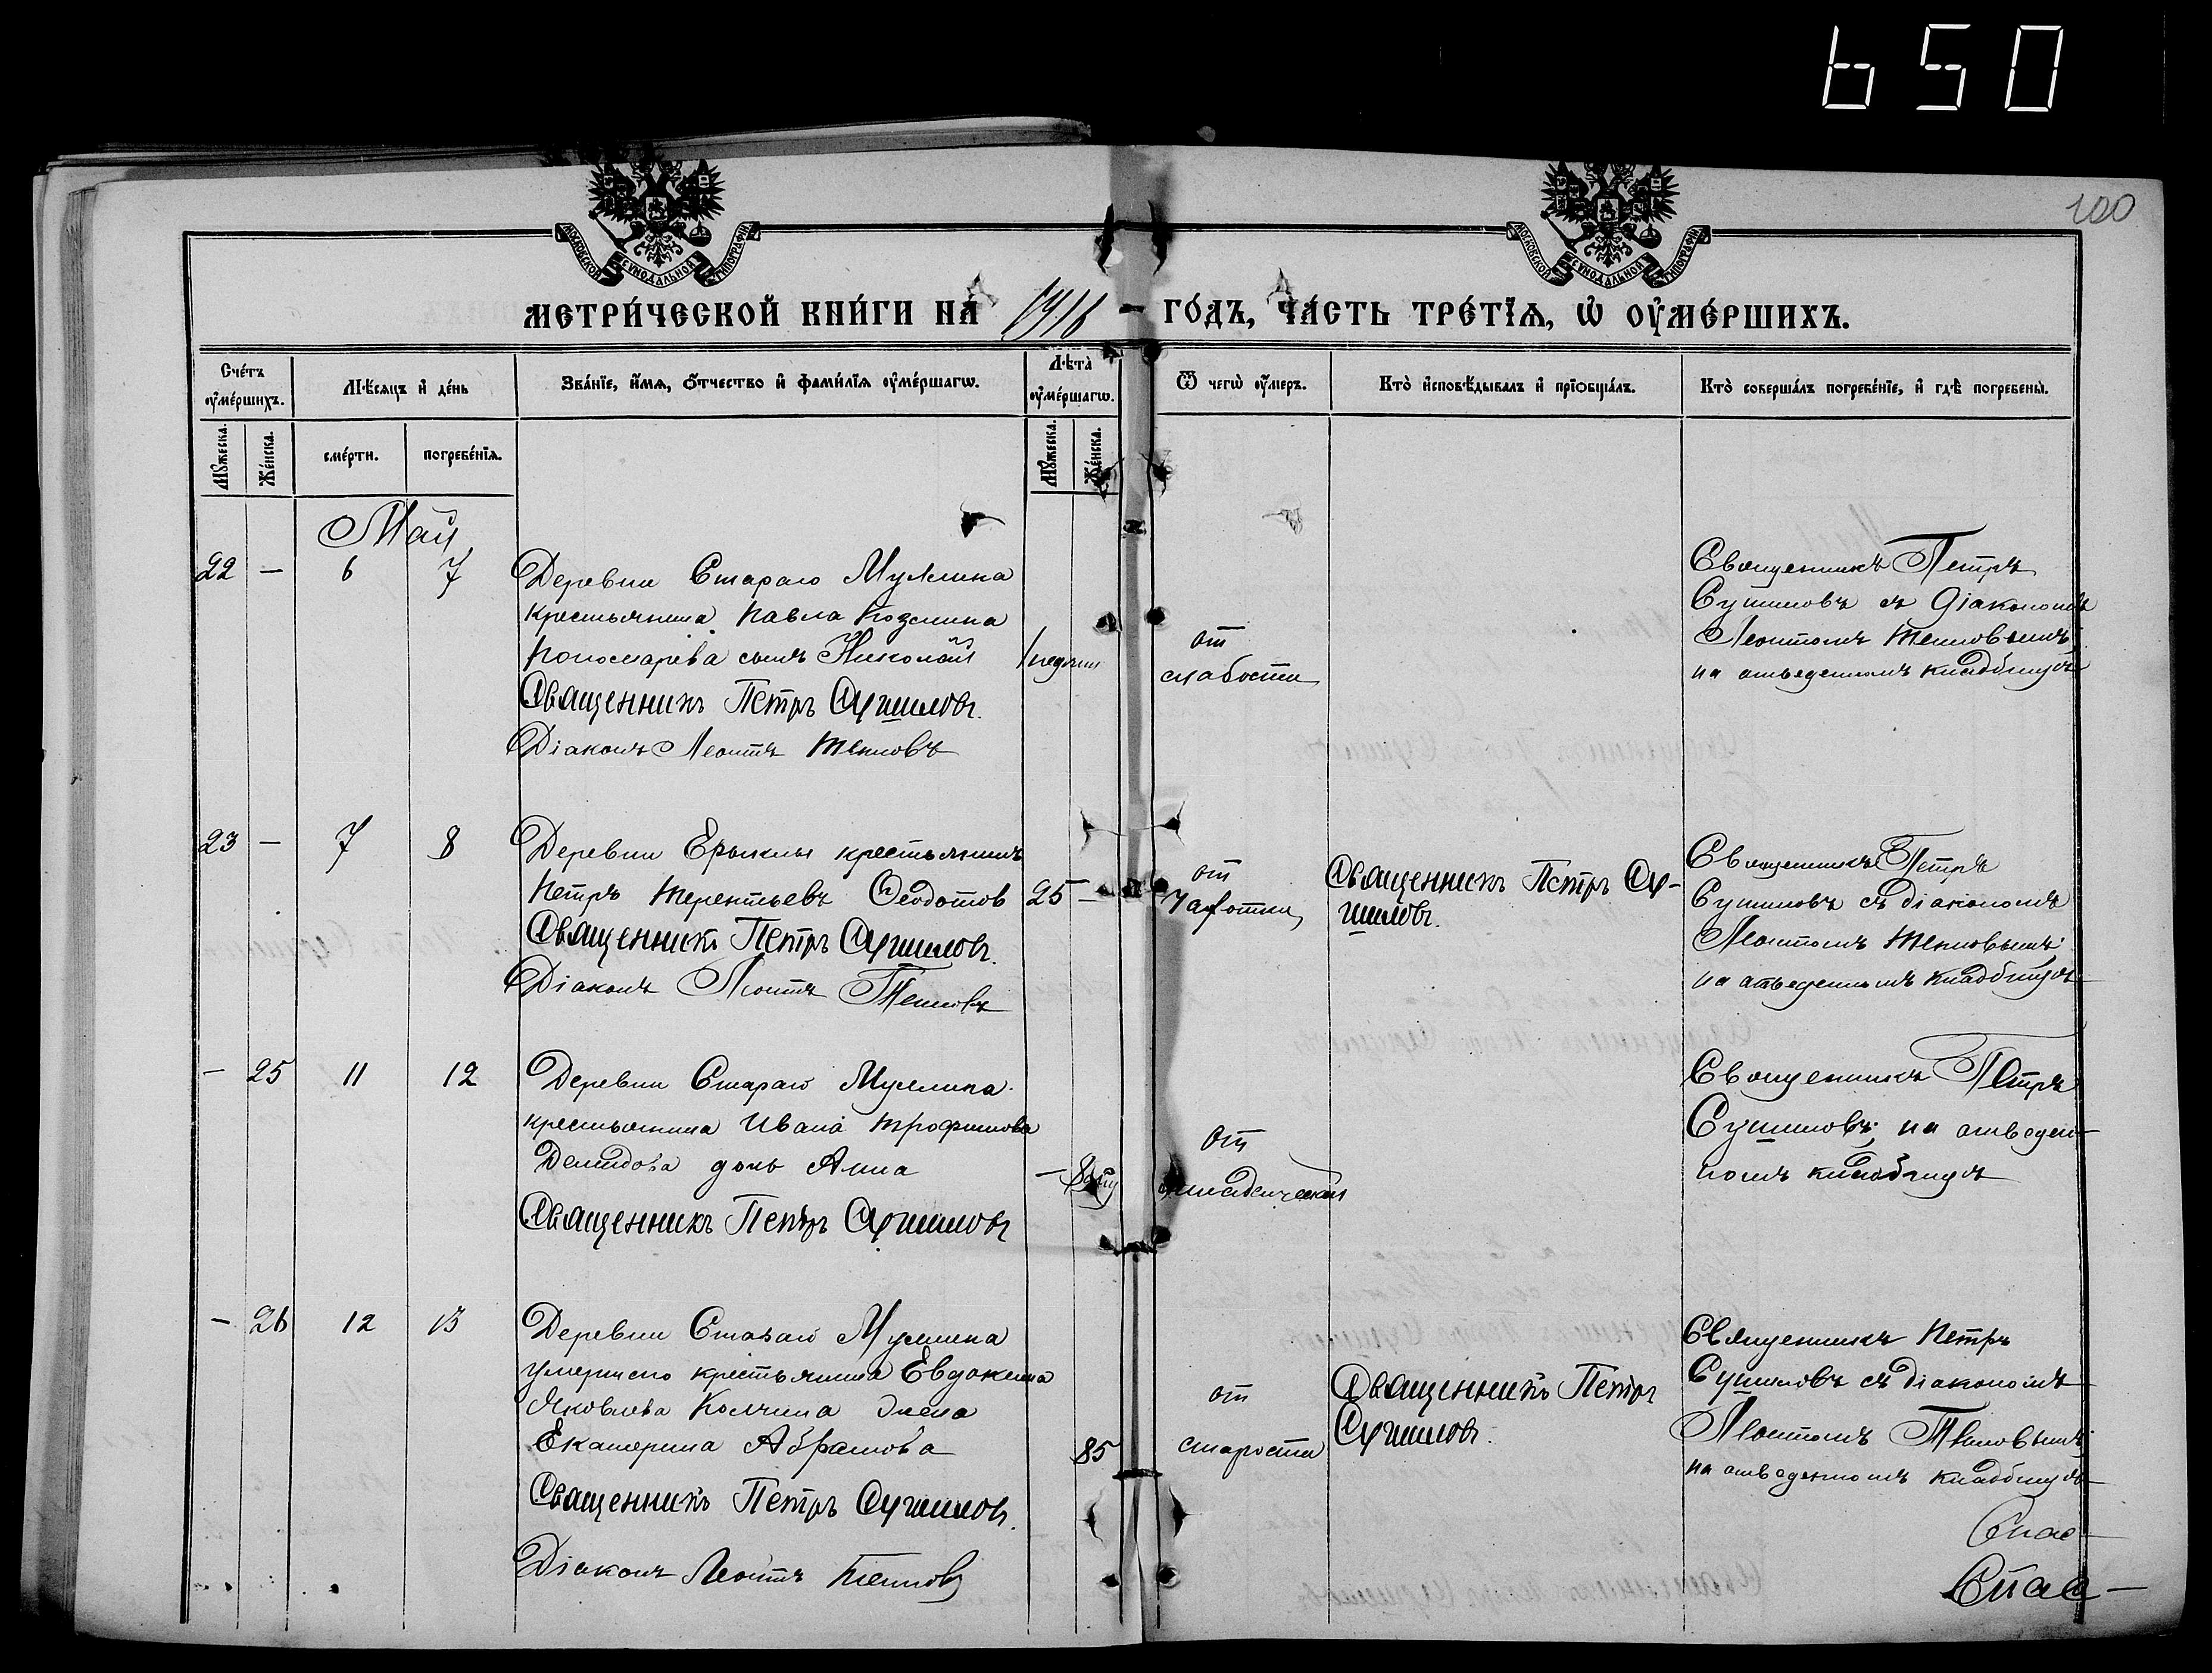 650
100
МОСКОВСКОЙ СѴНОДАЛЬНОЙ ТИПОГРАФІИ
МОСКОВСКОЙ СѴНОДАЛЬНОЙ ТИПОГРАФІИ
МЕТРИ́ЧЕСКОЙ КНИ́ГИ НА́ 1916 – ГО́ДЪ, ЧА́СТЬ ТРЕ́ТІѦ, Ѡ҆ ОУ҆МЕ́РШИХЪ.
Сче́тъ оу҆ме́ршихъ.
Мѣ́сяцъ и҆ де́нь
Зва́нїе, и҆́мя, ѻ҆́тчество и҆ фами́лїя оу҆ме́ршагѡ.
Лѣ́та оу҆ме́ршагѡ.
Ѿ чегѡ̀ оу҆́меръ.
Кто̀ и҆сповѣ́дывалъ и҆ прїѻбща́лъ.
Кто̀ соверша́лъ погребе́нїе, и҆ гдѣ̀ погребены̀.
Мꙋ́жеска.
Же́нска.
сме́рти.
погребе́нїя.
Мꙋ́жеска.
Же́нска.
Май
22 – 6 7
Деревни Стараго Муллина
крестьянина Павла Козмина
Пономарева сынъ Николай
Священникъ Петръ Сушиловъ.
Діаконъ Леонтъ Тепловъ
1 недѣли
от
слабости
Священникъ Петръ
Сушиловъ съ діакономъ
Леонтомъ Тепловымъ,
на отведенномъ кладбищѣ
23 – 7 8
Деревни Ерыклы крестьянинъ
Петръ Терентьевъ Ѳеодотов
Священникъ Петръ Сушиловъ.
Діаконъ Леонтъ Тепловъ
25 –
от
чахотки
Священникъ Петръ Су-
шиловъ.
Священникъ Петръ
Сушиловъ съ діакономъ
Леонтомъ Тепловымъ
на отведенномъ кладбищѣ
– 25 11 12
Деревни Стараго Муллина
крестьянина Ивана Трофимова
Демидова дочь Анна
Священникъ Петръ Сушиловъ
– 8
От
младенческой
Священникъ Петръ
Сушиловъ; на отведен-
номъ кладбищѣ
– 26 12 13
Деревни Стараго Муллина
умершаго крестьянина Евдокима
Яковлева Колчина жена
Екатерина Абрамова
Священникъ Петръ Сушиловъ.
Діаконъ Леонтъ Тепловъ
85
от
старости
Священникъ Петръ
Сушиловъ.
Священникъ Петръ
Сушиловъ съ діакономъ
Леонтомъ Тепловымъ
на отведенномъ кладбищѣ
Спас-